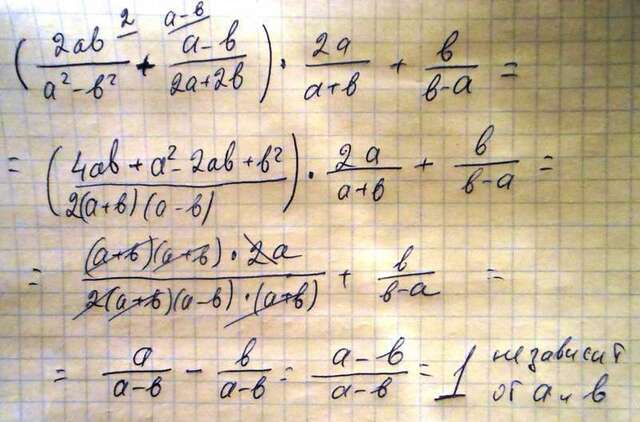 (2ab/(a²-b²) \2 + (a-b)/(2a+2b) \a-b) · 2a/(a+b) + b/(b-a) =
= ((4ab+a²-2ab+b²)/(2(a+b)(a-b))) · 2a/(a+b) + b/(b-a) =
= ((a+b)(a+b)·2a)/(2(a+b)(a-b)·(a+b)) + b/(b-a) =
= a/(a-b) - b/(a-b) = (a-b)/(a-b) = 1 не зависит от a и b